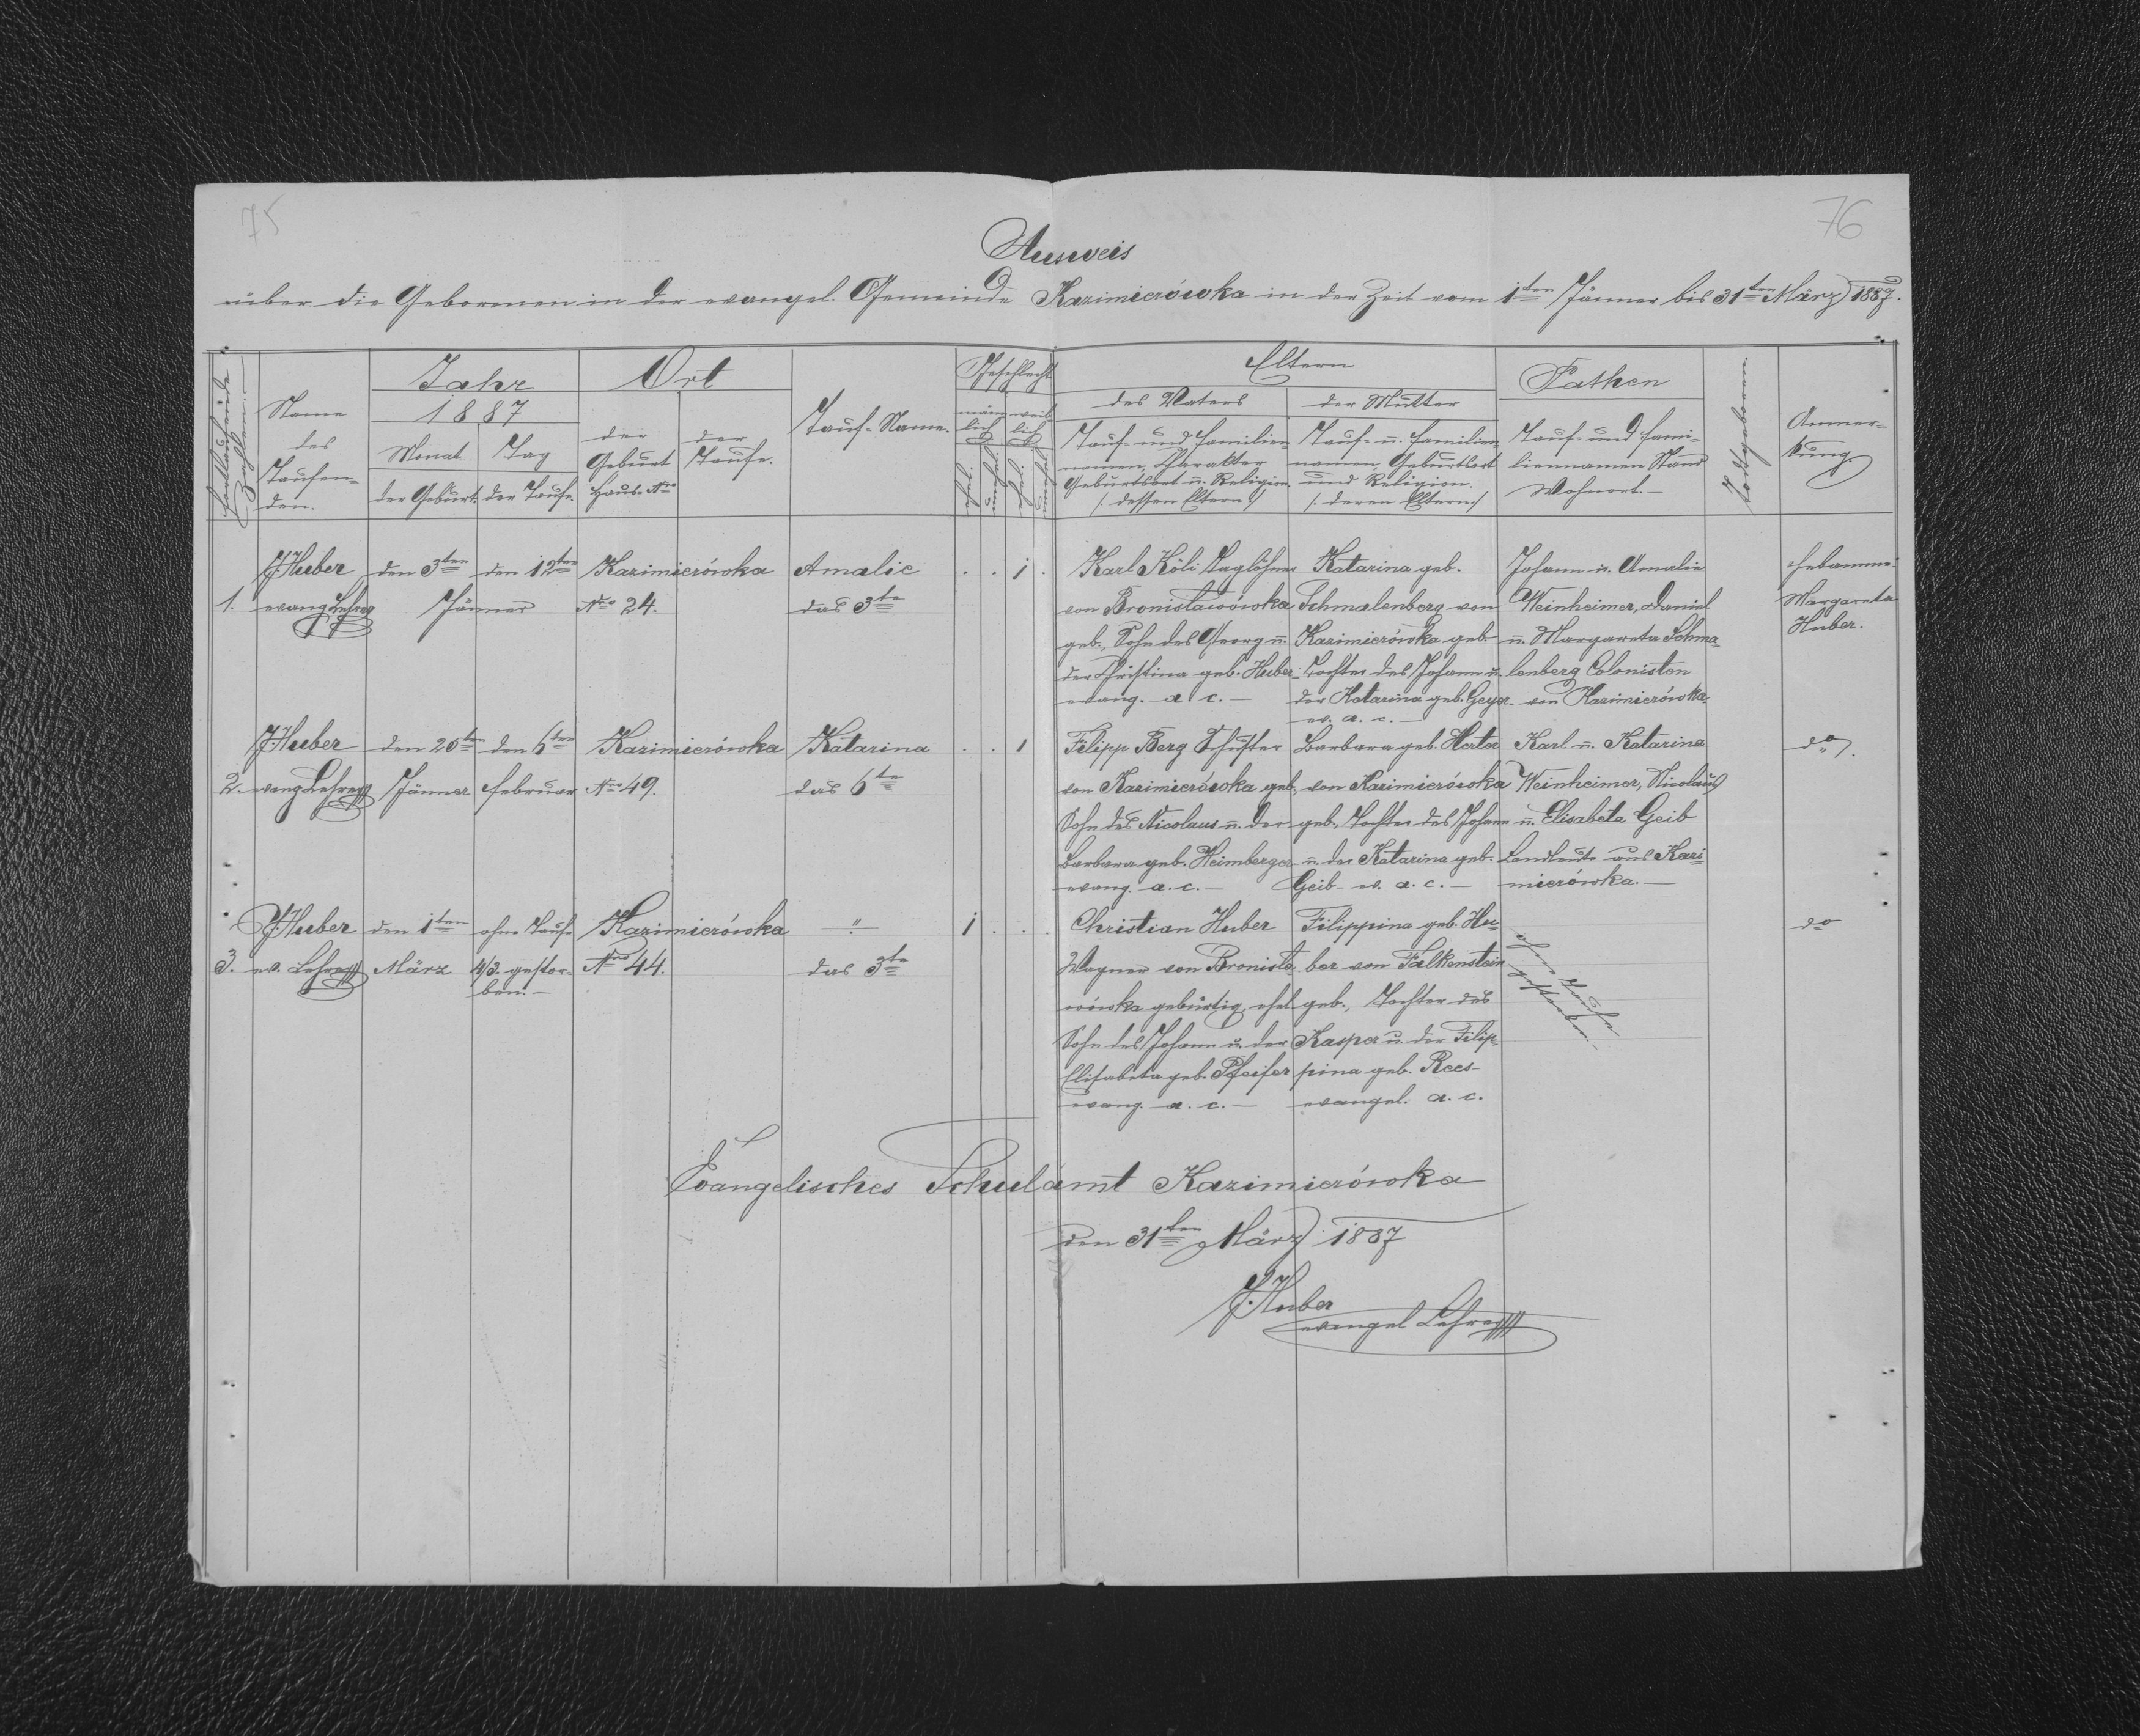 75
76
Ausweis
über die Geborenen in der evangel. Gemeinde Kazimierówka in der Zeit vom 1ten Jänner bis 31ten März 1887.
Fortlaufende Zahlen.
Name des Taufen-den.
Jahr
1887
Monat
Tag
der Geburt.
der Taufe.
Ort
der Geburt
der Taufe.
Haus-Nro
Tauf-Name.
Geschlecht
männ-lich
weib-lich
ehel.
unehel.
ehel.
unehel.
Eltern
des Vaters
der Mutter
Tauf- und Familien-
namen, Charakter
Geburtsort u. Religion.
/: dessen Eltern :/
Tauf- u. Familien-
namen, Geburtsort
und Religion.
/: deren Eltern :/
Pathen
Tauf- und Fami-
liennamen Stand
Wohnort.—
Todtgeboren.
Anmer-
kung.
1.
J. Huber
evang. Lehrer
den 3ten
den 12ten
Jänner
Kazimierówka
Nro 24.
Amalie
das 3te
. . 1 .
Karl Köli Taglöhner
von Bronisławówka
geb., Sohn des Georg u.
der Christina geb. Huber
evang. a. c.—
Katarina geb.
Schmalenberg von
Kazimierówka geb.
Tochter des Johann u.
der Katarina geb. Geyer
ev. a. c.—
Johann u. Amalia
Weinheimer, Daniel
u. Margareta Schma-
lenberg Colonisten
von Kazimierówka.
Hebamme
Margareta
Huber.
2.
J. Huber
evang Lehrer
den 26ten
Jänner
den 6ten
Februar
Kazimierówka
Nro 49.
Katarina
das 6te
. . 1
Filipp Berg Schuster
von Kazimierówka geb.
Sohn des Nicolaus u. der
Barbara geb. Heimberger
evang. a. c.—
Barbara geb. Herter
von Kazimierówka
geb., Tochter des Johann
u. der Katarina geb.
Geib ev. a. c.—
Karl u. Katarina
Weinheimer, Nicolaus
u. Elisabeta Geib
Landleute aus Kazi-
mierówka.—
do.
3.
J. Huber
ev. Lehrer
den 1ten
März
ohne Taufe
4/3. gestor-
ben.—
Kazimierówka
Nro 44.
—"—
das 3te
1 . . .
Christian Huber
Wagner von Bronisła-
wówka gebürtig, ehel.
Sohn des Johann u. der
Elisabeta geb. Pfeifer
evang. a. c.—
Filippina geb. Hu-
ber von Falkenstein
geb., Tochter des
Kasper u. der Filip-
pina geb. Rees-
evangel. a. c.
ohne Taufe
gestorben.—
do
Evangelisches Schulamt Kazimierówka
den 31ten März 1887
J. Huber
evangel Lehrer